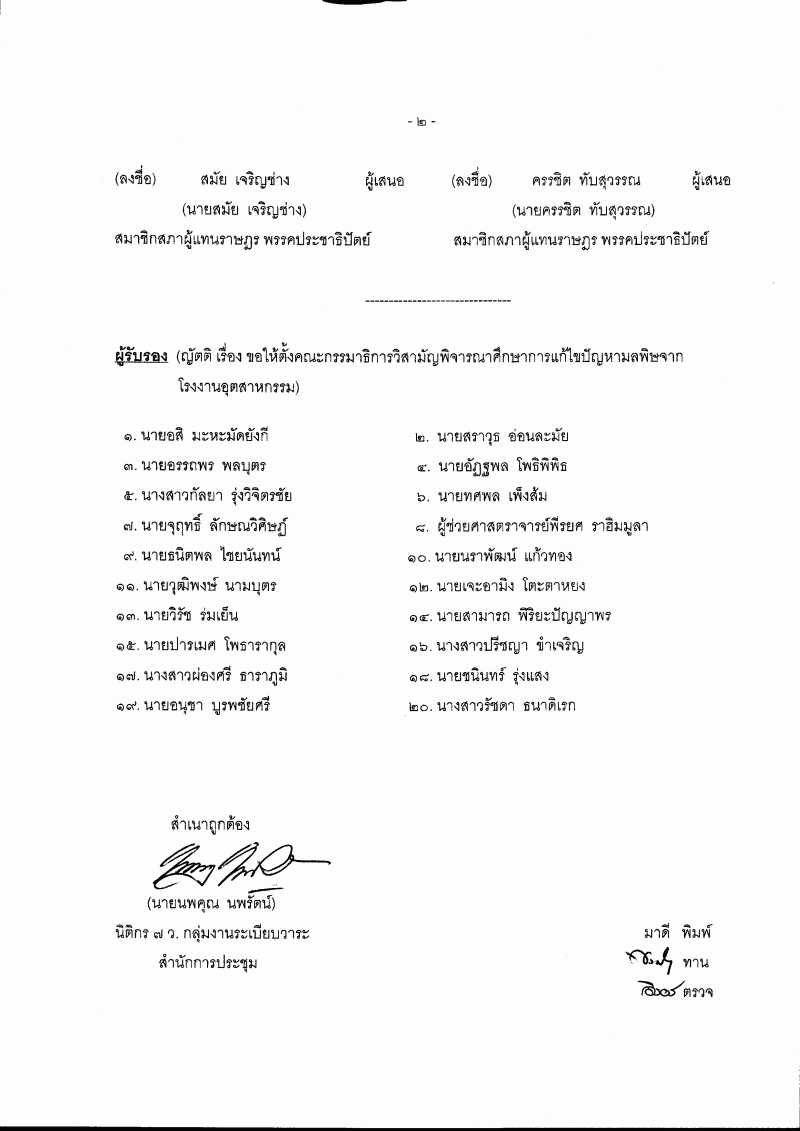 - ๒ -
(ลงชื่อ) สมัย เจริญช่าง ผู้เสนอ (ลงชื่อ) ครรชิต ทับสุวรรณ ผู้เสนอ
(นายสมัย เจริญช่าง) (นายครรชิต ทับสุวรรณ)
สมาชิกสภาผู้แทนราษฎร พรรคประชาธิปัตย์ สมาชิกสภาผู้แทนราษฎร พรรคประชาธิปัตย์
-------------------------------
ผู้รับรอง (ญัตติ เรื่อง ขอให้ตั้งคณะกรรมาธิการวิสามัญพิจารณาศึกษาการแก้ไขปัญหามลพิษจาก
โรงงานอุตสาหกรรม)
๑. นายอสิ มะหะมัดยังกี ๒. นายสราวุธ อ่อนละมัย
๓. นายอรรถพร พลบุตร ๔. นายอัฏฐพล โพธิพิพิธ
๕. นางสาวกัลยา รุ่งวิจิตรชัย ๖. นายทศพล เพ็งส้ม
๗. นายจุฤทธิ์ ลักษณวิศิษฏ์ ๘. ผู้ช่วยศาสตราจารย์พีรยศ ราฮิมมูลา
๙. นายธนิตพล ไชยนันทน์ ๑๐. นายนราพัฒน์ แก้วทอง
๑๑. นายวุฒิพงษ์ นามบุตร ๑๒. นายเจะอามิง โตะตาหยง
๑๓. นายวิรัช ร่มเย็น ๑๔. นายสามารถ พิริยะปัญญาพร
๑๕. นายปารเมศ โพธารากุล ๑๖. นางสาวปรีชญา ขำเจริญ
๑๗. นางสาวผ่องศรี ธาราภูมิ ๑๘. นายชนินทร์ รุ่งแสง
๑๙. นายอนุชา บูรพชัยศรี ๒๐. นางสาวรัชดา ธนาดิเรก
สำเนาถูกต้อง
(นายนพคุณ นพรัตน์)
นิติกร ๗ ว. กลุ่มงานระเบียบวาระ มาดี พิมพ์
สำนักการประชุม ทาน
ตรวจ